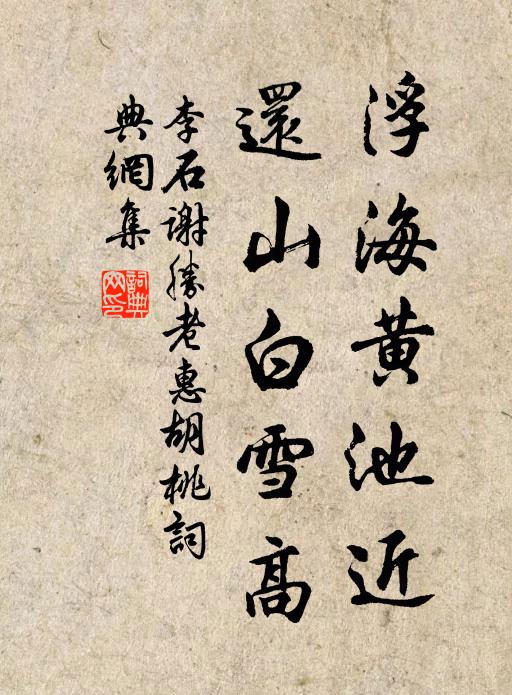 浮海黄池近
還山白雪高
李石謝勝老惠胡桃詞
典網集
詞典网印